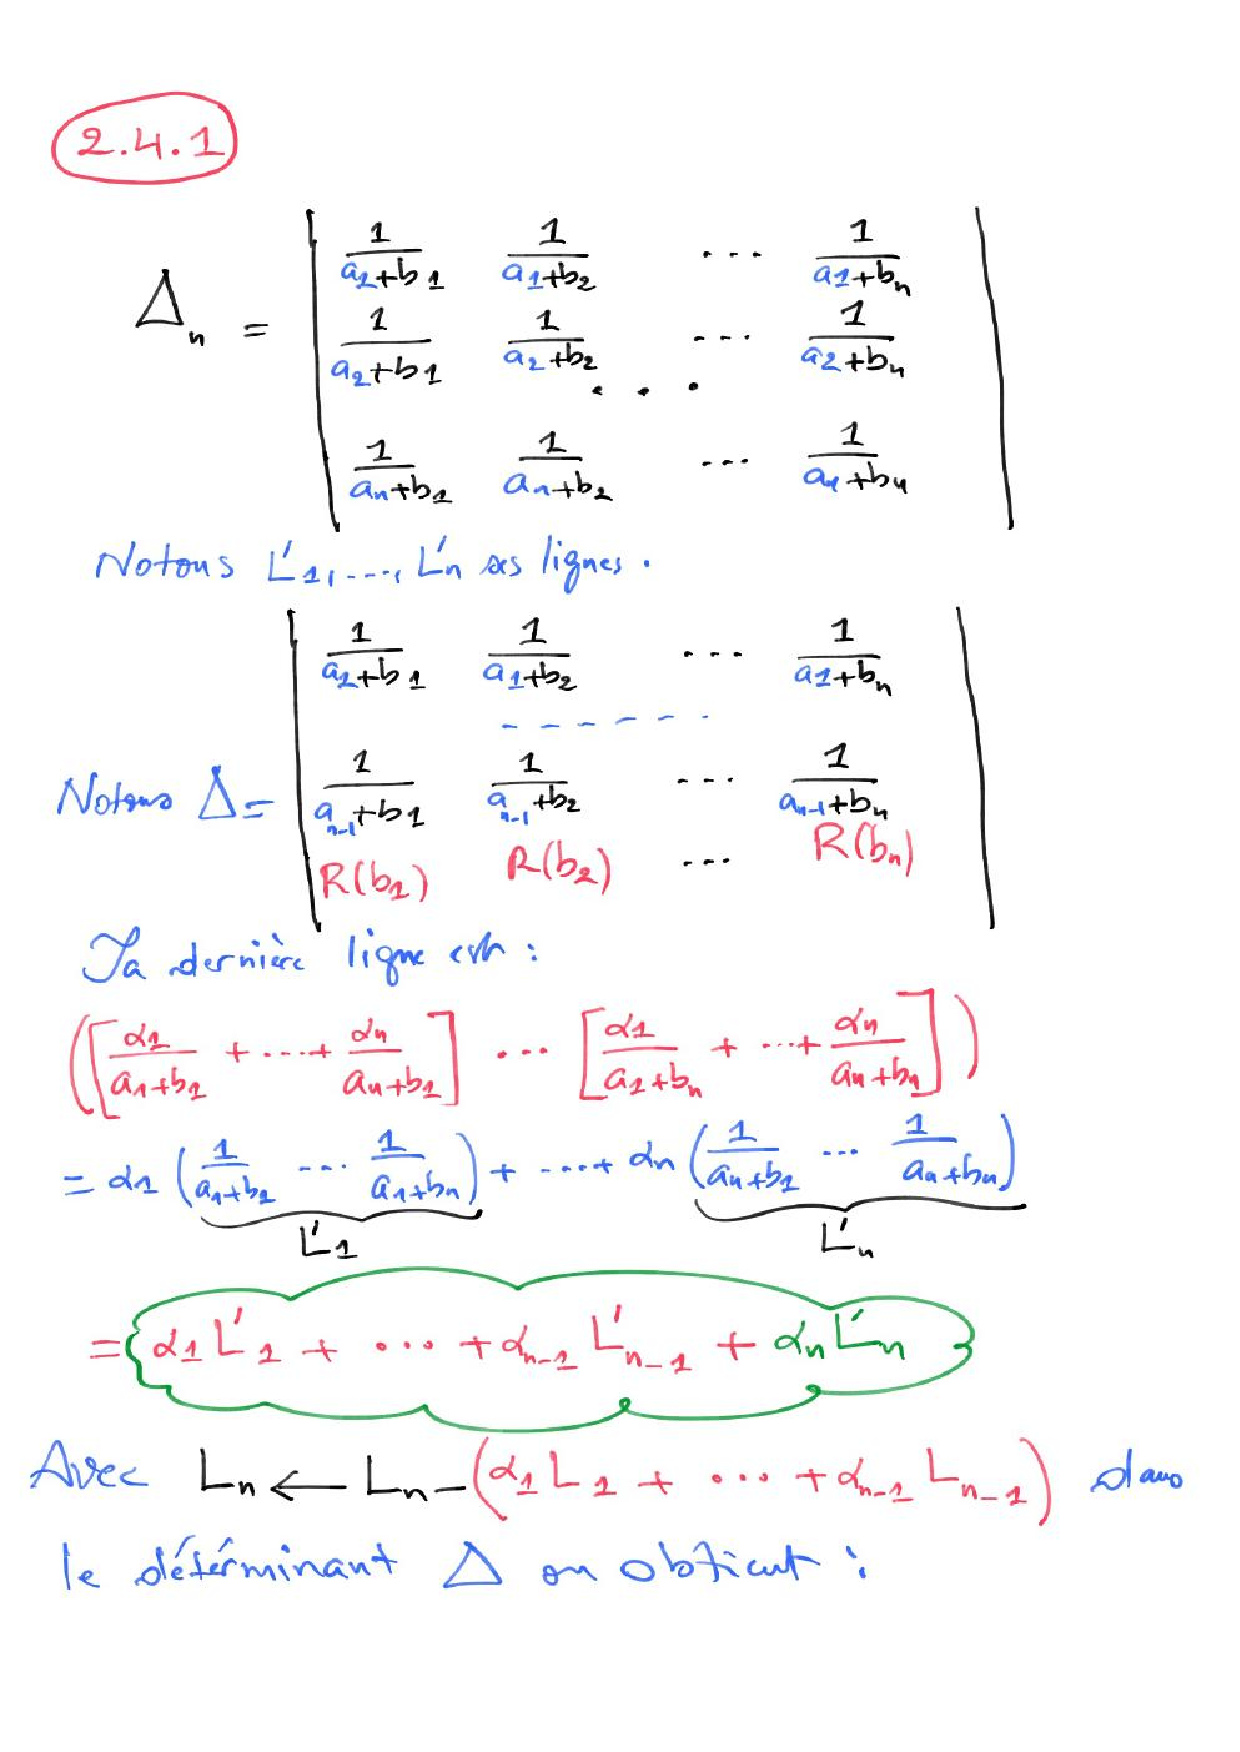 2.4.1
Δₙ = | 1/(a₁+b₁) 1/(a₁+b₂) ... 1/(a₁+bₙ) |
| 1/(a₂+b₁) 1/(a₂+b₂) ... 1/(a₂+bₙ) |
. . .
| 1/(aₙ+b₁) 1/(aₙ+b₂) ... 1/(aₙ+bₙ) |
Notons L'₁, ..., L'ₙ ses lignes.
| 1/(a₁+b₁) 1/(a₁+b₂) ... 1/(a₁+bₙ) |
- - - - - -
Notons Δ = | 1/(aₙ₋₁+b₁) 1/(aₙ₋₁+b₂) ... 1/(aₙ₋₁+bₙ) |
| R(b₁) R(b₂) ... R(bₙ) |
Sa dernière ligne est :
([α₁/(a₁+b₁) + ... + αₙ/(aₙ+b₁)] ... [α₁/(a₁+bₙ) + ... + αₙ/(aₙ+bₙ)])
= α₁ (1/(a₁+b₁) ... 1/(a₁+bₙ)) + ... + αₙ (1/(aₙ+b₁) ... 1/(aₙ+bₙ))
L'₁ L'ₙ
= α₁L'₁ + ... + αₙ₋₁L'ₙ₋₁ + αₙL'ₙ
Avec Lₙ ← Lₙ − (α₁L₁ + ... + αₙ₋₁Lₙ₋₁) dans
le déterminant Δ on obtient :